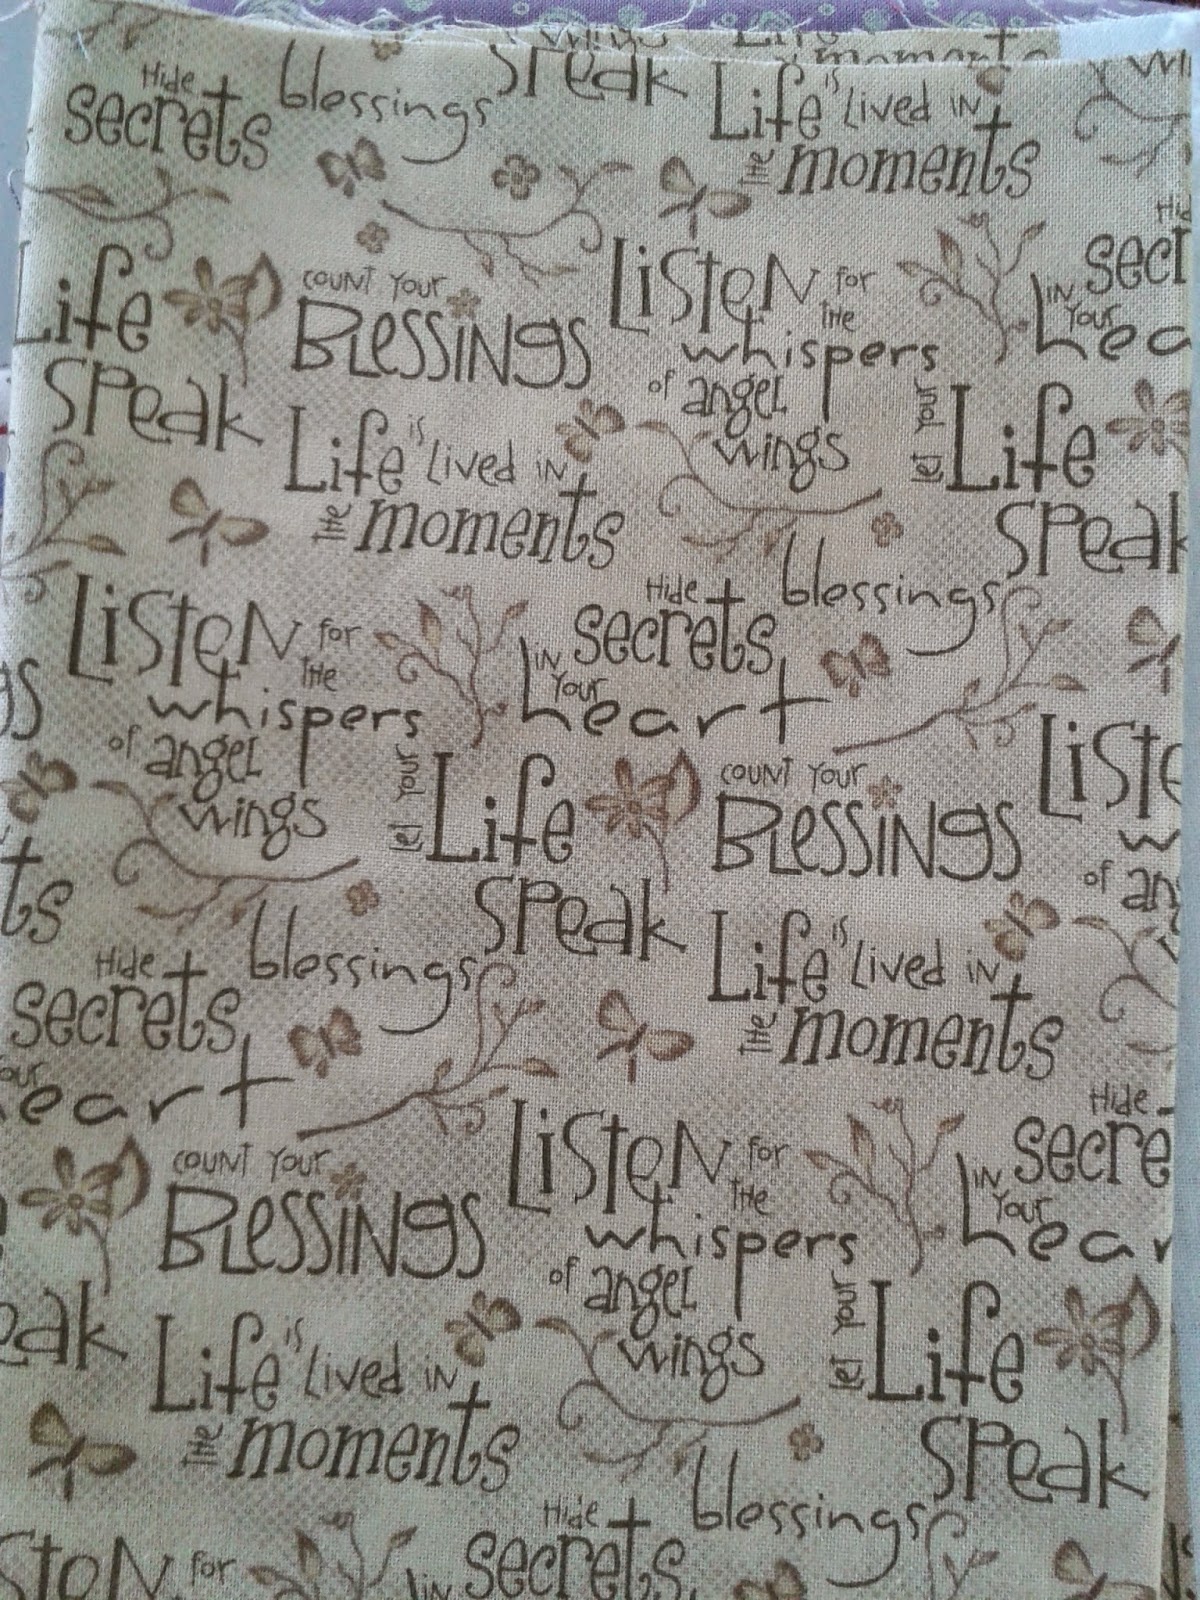 Life
moments
Hide
secrets
blessings
speak
Life is lived in
the moments
Hid
sec
Life
COUNT YOUR
BLESSINGS
Listen for
the
whispers
of angel
wings
in
Your
hea
speak
Life is lived in
the moments
let your
Life
speak
Listen for
the
whispers
of angel
wings
Hide
secrets
in
Your
heart
blessings
gs
let your
Life
speak
COUNT YOUR
BLESSINGS
Liste
w
of an
ts
Hide
secrets
our
eart
blessings
Life is lived in
the moments
COUNT YOUR
BLESSINGS
Listen for
the
whispers
of angel
wings
Hide
secre
in
Your
hear
eak
Life is lived in
the moments
let your
Life
speak
sten for
Hide
secrets
in
blessings